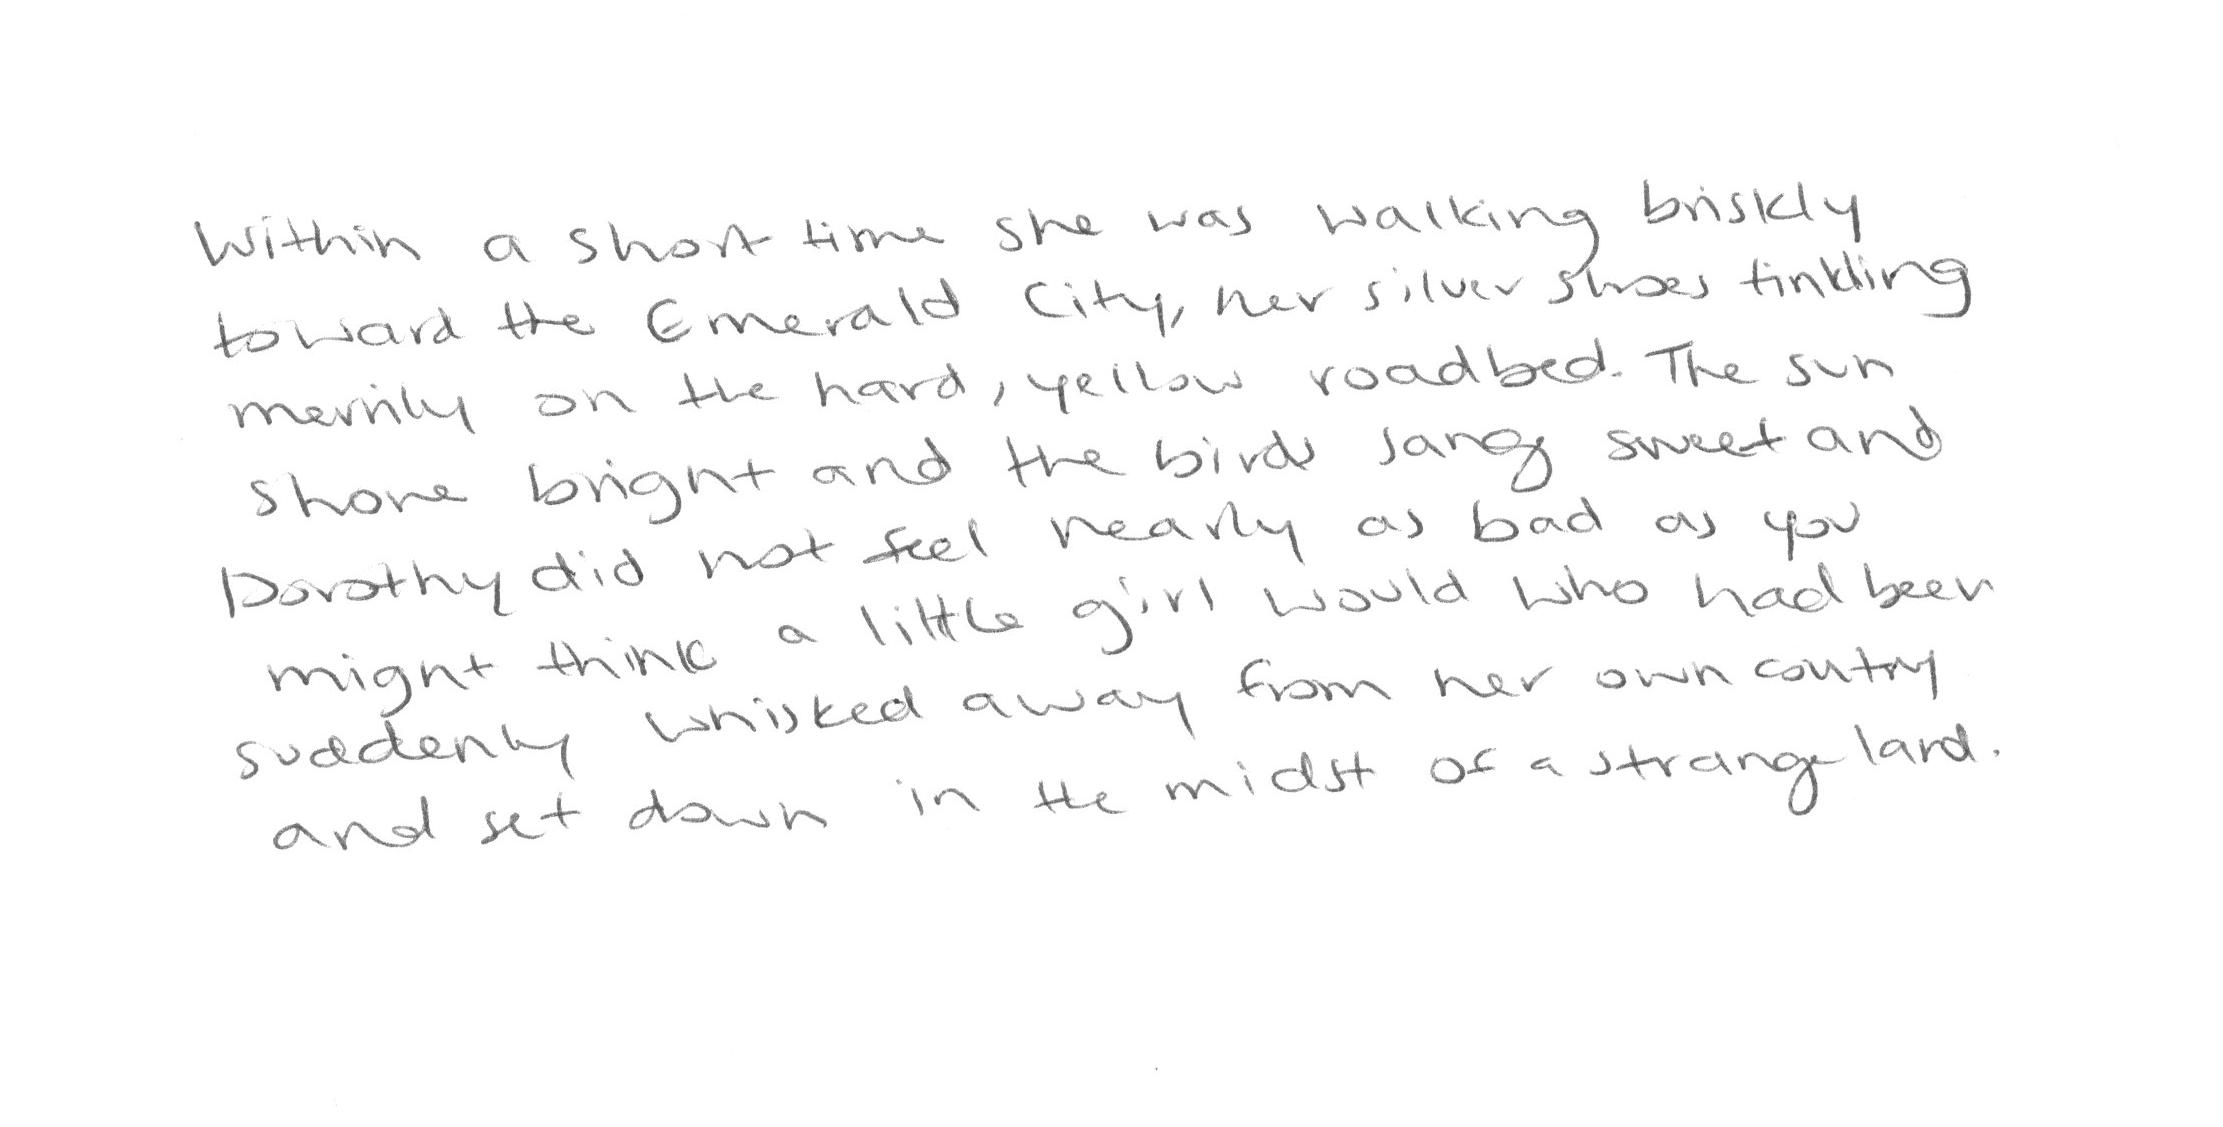 Within a short time she was walking briskly
toward the Emerald City, her silver shoes tinkling
merrily on the hard, yellow roadbed. The sun
shone bright and the birds sang sweet and
Dorothy did not feel nearly as bad as you
might think a little girl would who had been
suddenly whisked away from her own coutry
and set down in the midst of a strange land.